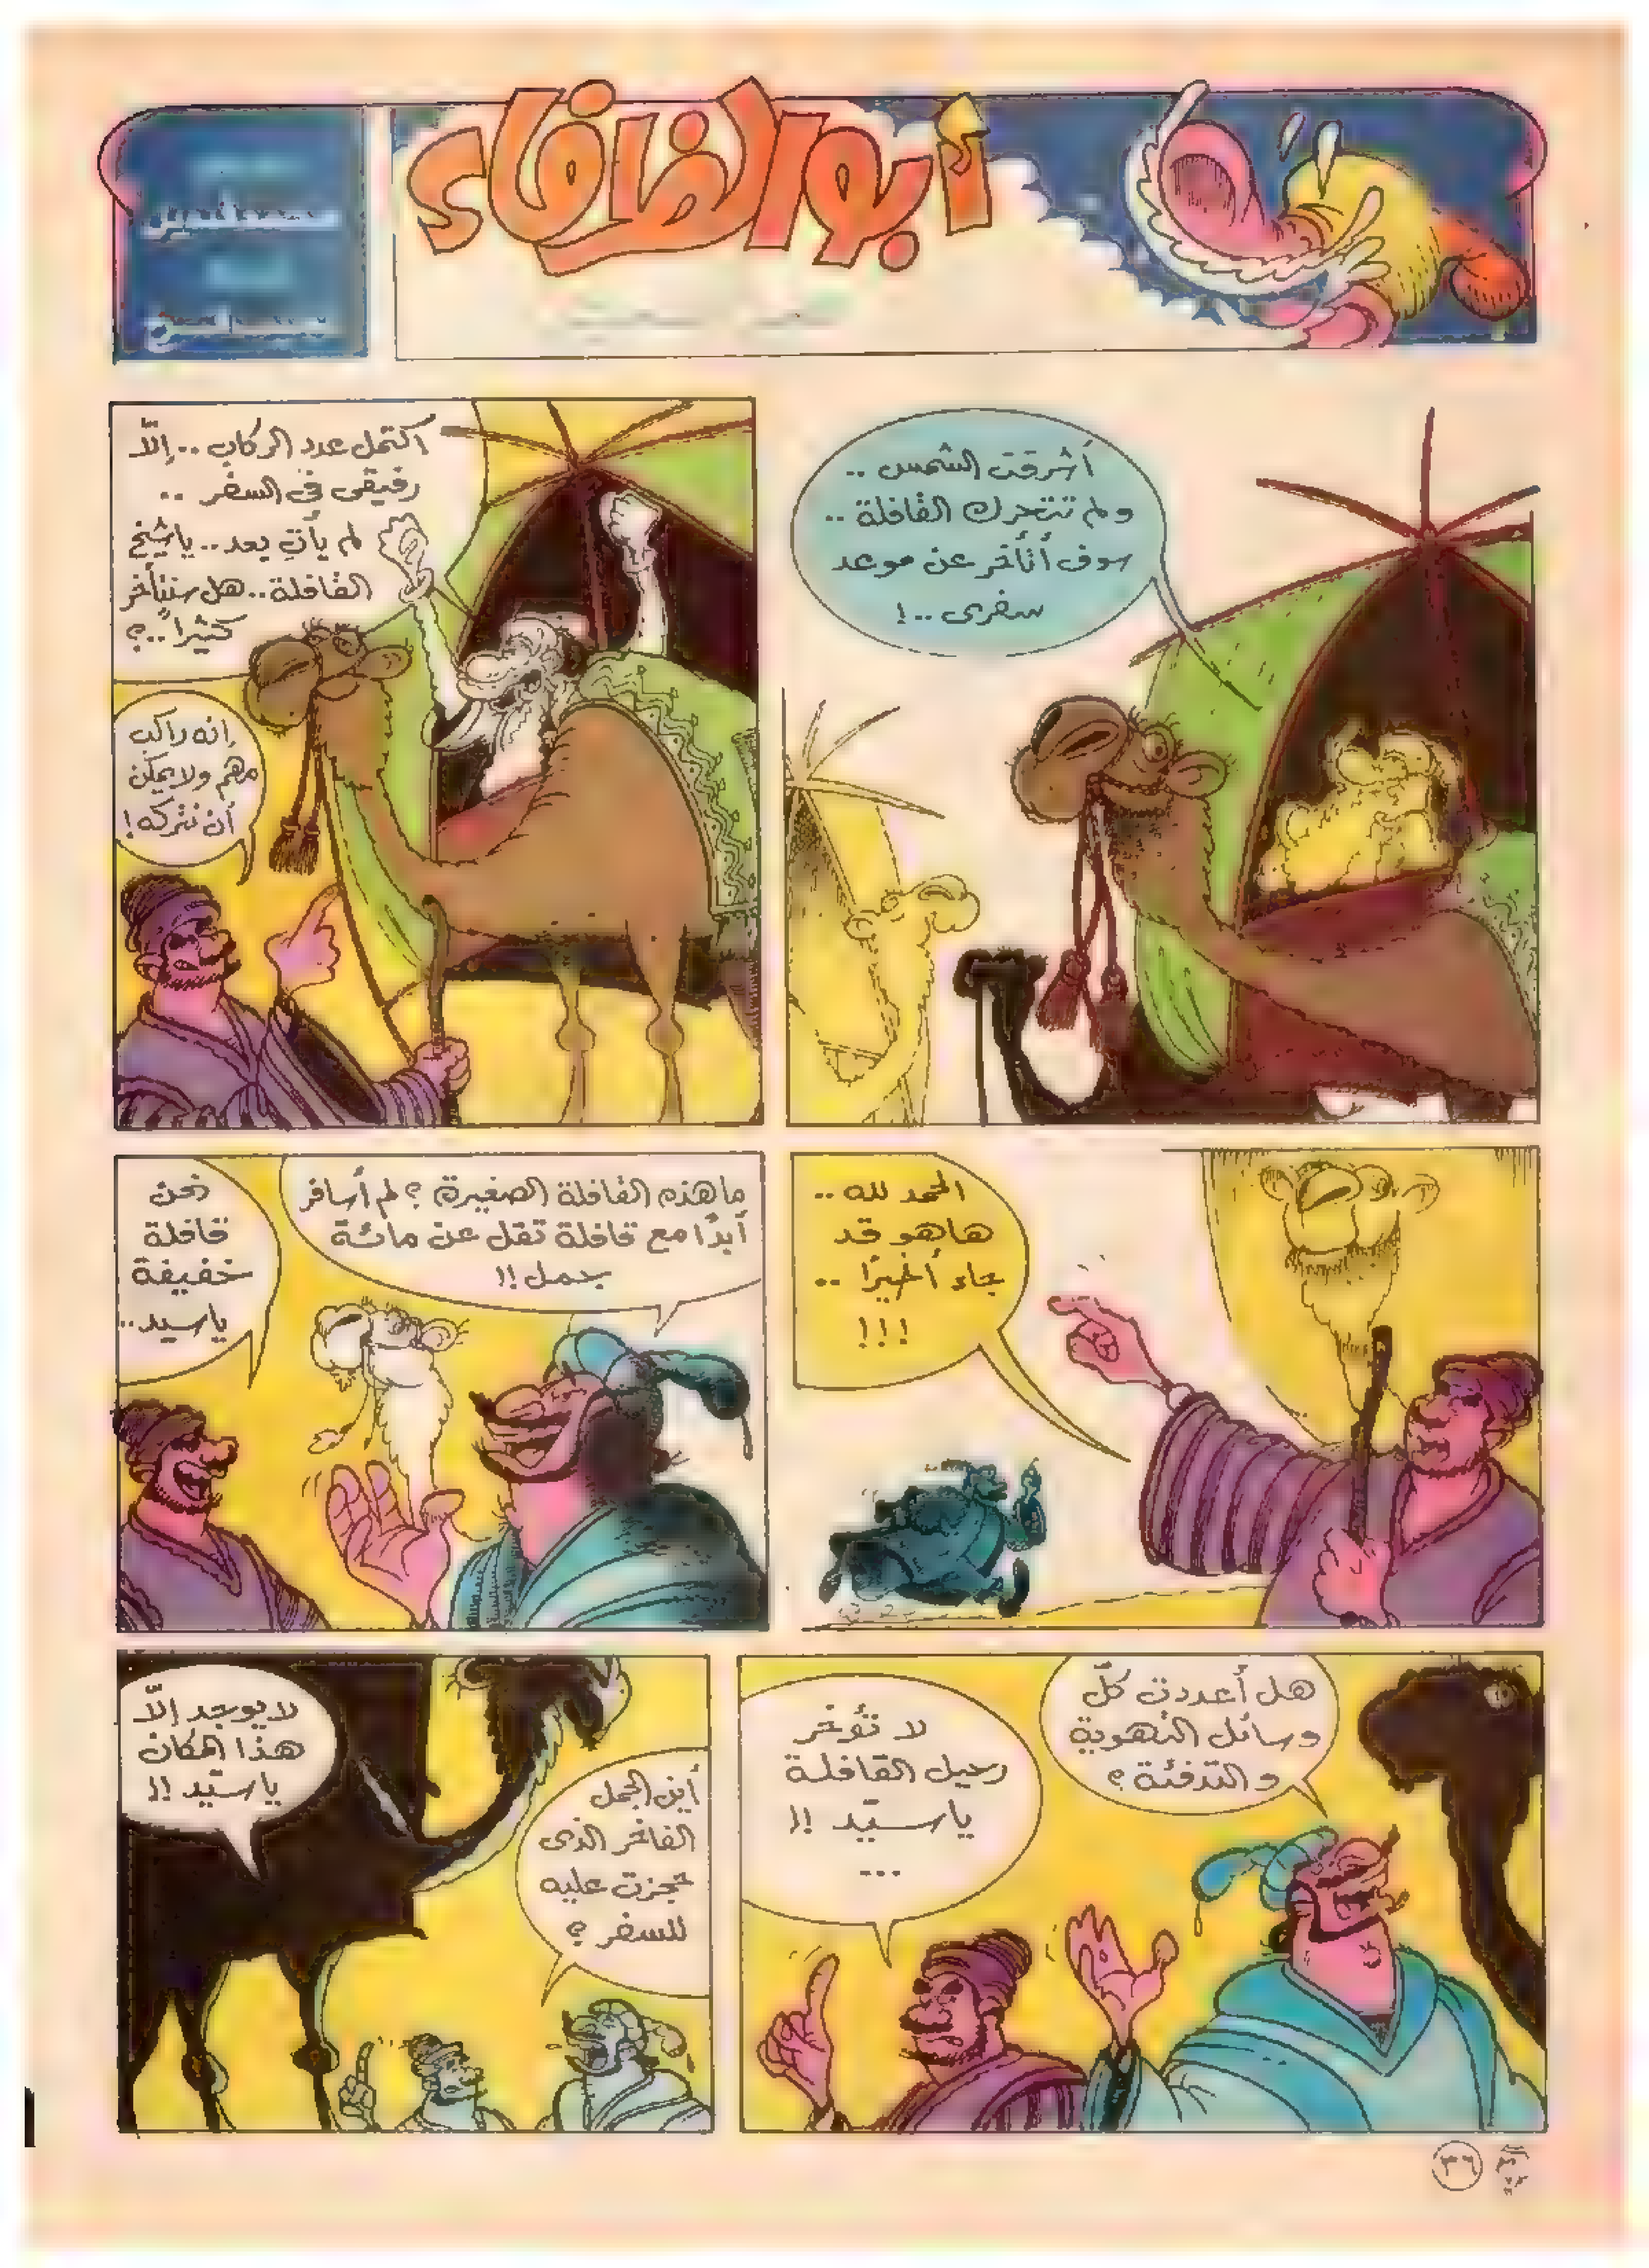 أبو الظرفاء
أشرقت الشمس ..
ولم تتحرك القافلة ..
سوف أتأخر عن موعد
سفرى ..!
اكتمل عدد الركاب .. إلّا
رفيقى فى السفر ..
لم يأتِ بعد .. ياشيخ
القافلة .. هل سنتأخر
كثيراً ..؟
إنه راكب
مهم ولا يمكن
أن نتركه !
الحمد لله ..
هاهو قد
جاء أخيرًا ..
!!!
ما هذه القافلة الصغيرة ؟ لم أسافر
أبدًا مع قافلة تقل عن مائة
جمل !!
نحن
قافلة
خفيفة
ياسيد ..
هل أعددت كلّ
وسائل التهوية
والتدفئة ؟
لا تؤخر
رحيل القافلة
ياسيّد !!
...
أين الجمل
الفاخر الذى
حجزت عليه
للسفر ؟
لا يوجد إلّا
هذا المكان
ياسيّد !!
٣٦